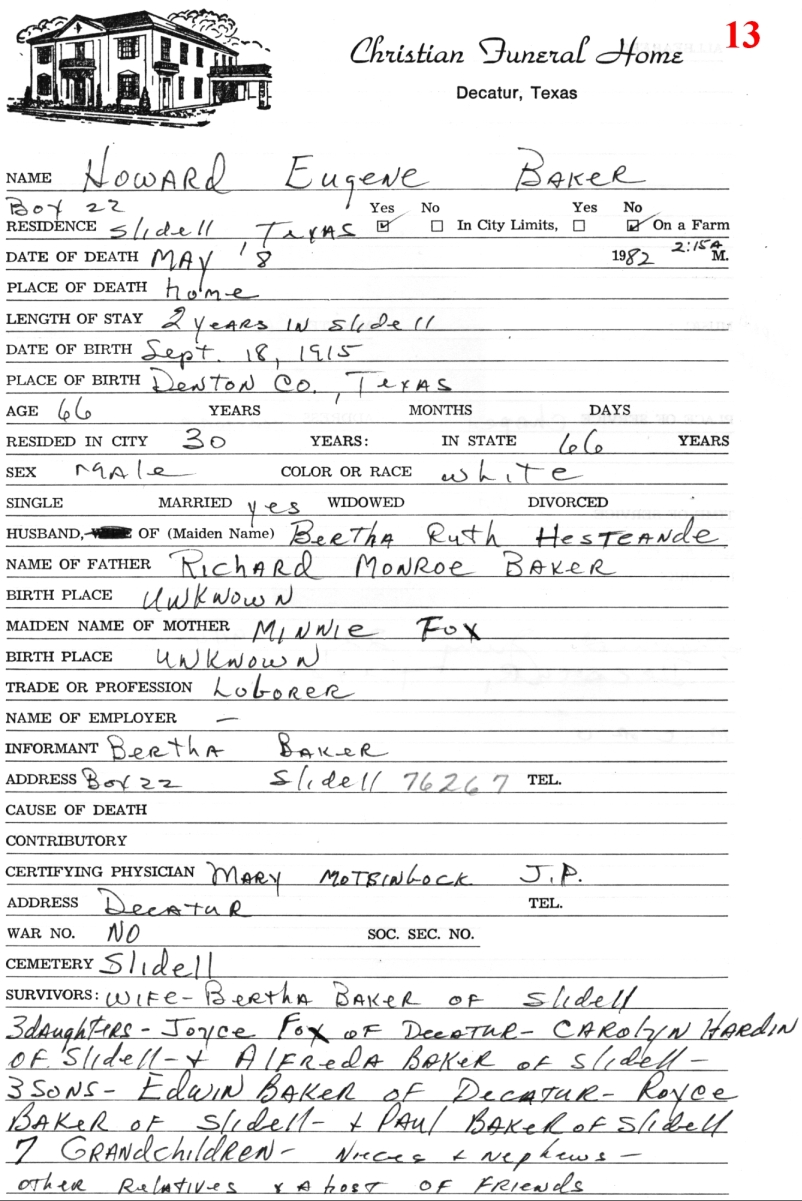 13
Christian Funeral Home
Decatur, Texas
NAME Howard Eugene Baker
Box 22 Yes No Yes No
RESIDENCE Slidell Texas ☑ ☐ In City Limits, ☐ ☑ On a Farm
DATE OF DEATH May '8 1982 2:15A M.
PLACE OF DEATH home
LENGTH OF STAY 2 years in Slidell
DATE OF BIRTH Sept. 18, 1915
PLACE OF BIRTH Denton Co., Texas
AGE 66 YEARS MONTHS DAYS
RESIDED IN CITY 30 YEARS: IN STATE 66 YEARS
SEX Male COLOR OR RACE white
SINGLE MARRIED yes WIDOWED DIVORCED
HUSBAND, OF (Maiden Name) Bertha Ruth Hesteande
NAME OF FATHER Richard Monroe Baker
BIRTH PLACE Unknown
MAIDEN NAME OF MOTHER Minnie Fox
BIRTH PLACE Unknown
TRADE OR PROFESSION Loborer
NAME OF EMPLOYER —
INFORMANT Bertha Baker
ADDRESS Box 22 Slidell 76267 TEL.
CAUSE OF DEATH
CONTRIBUTORY
CERTIFYING PHYSICIAN Mary J.P.
ADDRESS Decatur TEL.
WAR NO. NO SOC. SEC. NO.
CEMETERY Slidell
SURVIVORS: Wife - Bertha Baker of Slidell
3 daughters - Joyce Fox of Decatur - Carolyn Hardin
of Slidell - + Alfreda Baker of Slidell -
3 Sons - Edwin Baker of Decatur - Royce
Baker of Slidell - + Paul Baker of Slidell
7 Grandchildren - Nieces + Nephews -
other Relatives & a host of Friends